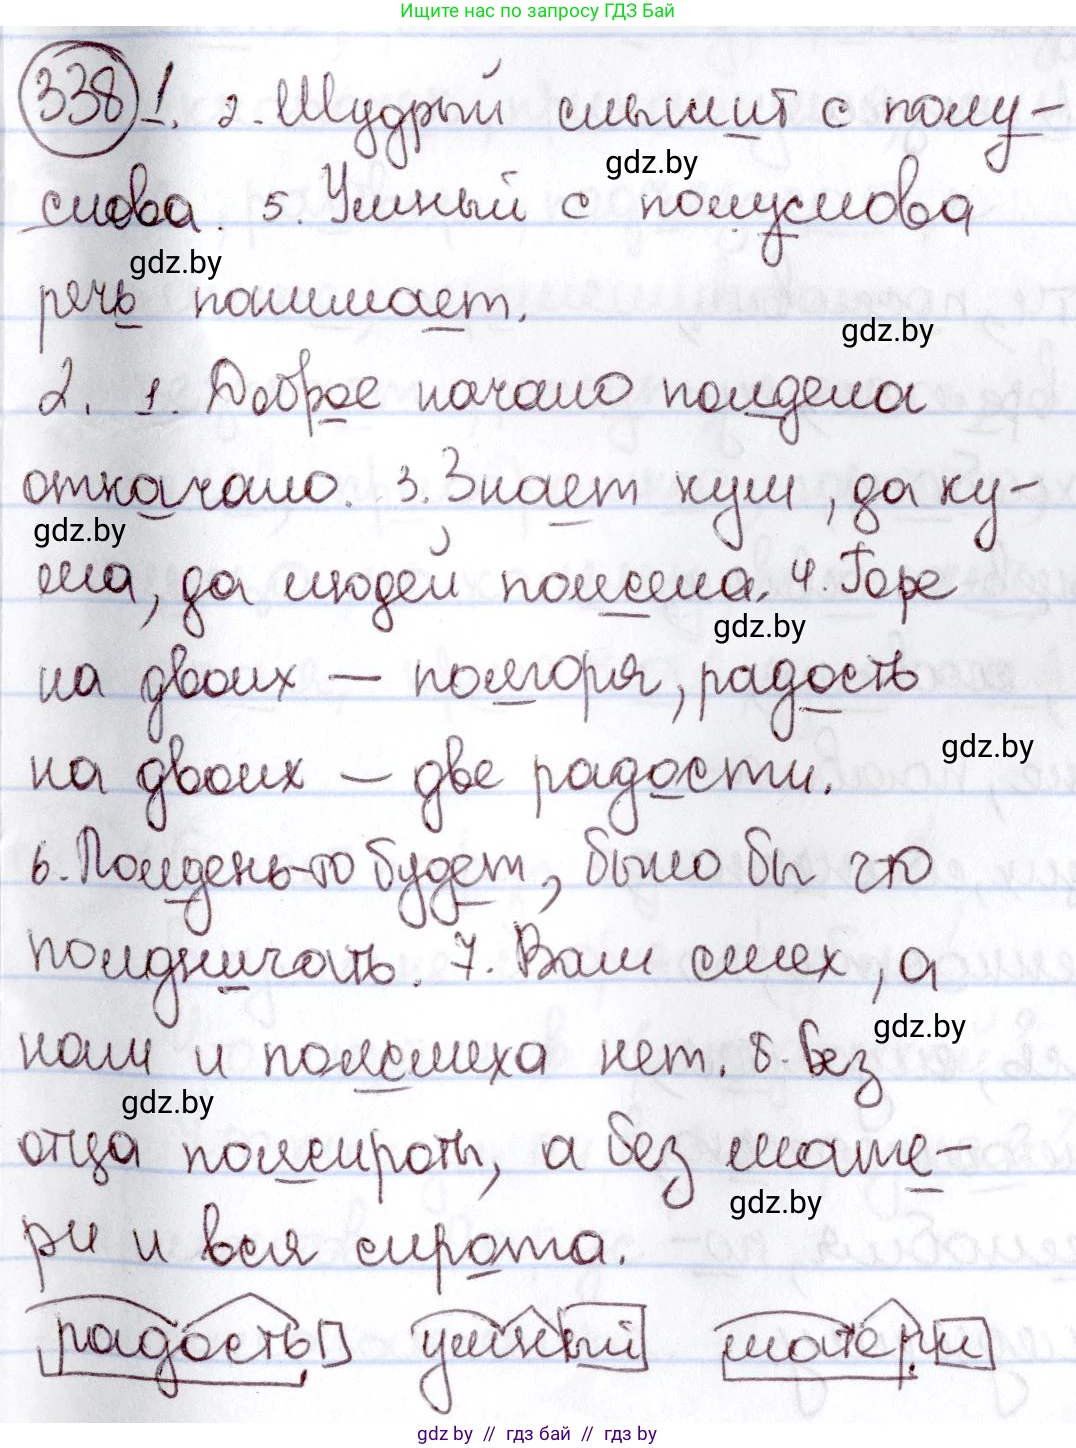 Ищите нас по запросу ГДЗ Бай
338 1. 2. Мудрый слышит с полу-
gdz.by
слова. 5. Умный с полуслова
gdz.by
речь понимает.
gdz.by
2. 1. Доброе начало полдела
откачало. 3. Знает кум, да ку-
gdz.by
ма, да людей полсела. 4. Горе
gdz.by
на двоих — полгоря, радость
gdz.by
на двоих — две радости.
6. Полдень-то будет, было бы что
полдничать. 7. Вам смех, а
gdz.by
нам и полсмеха нет. 8. Без
gdz.by
отца полсироты, а без мате-
gdz.by
ри и вся сирота.
радость умный матери
gdz.by // гдз бай // гдз by